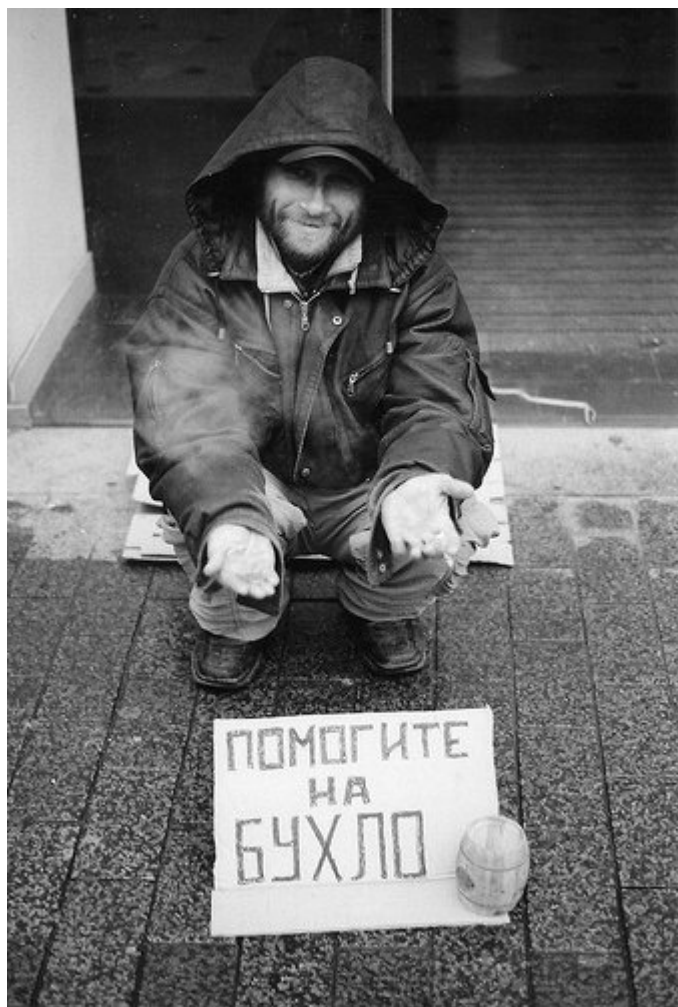 ПОМОГИТЕ
НА
БУХЛО